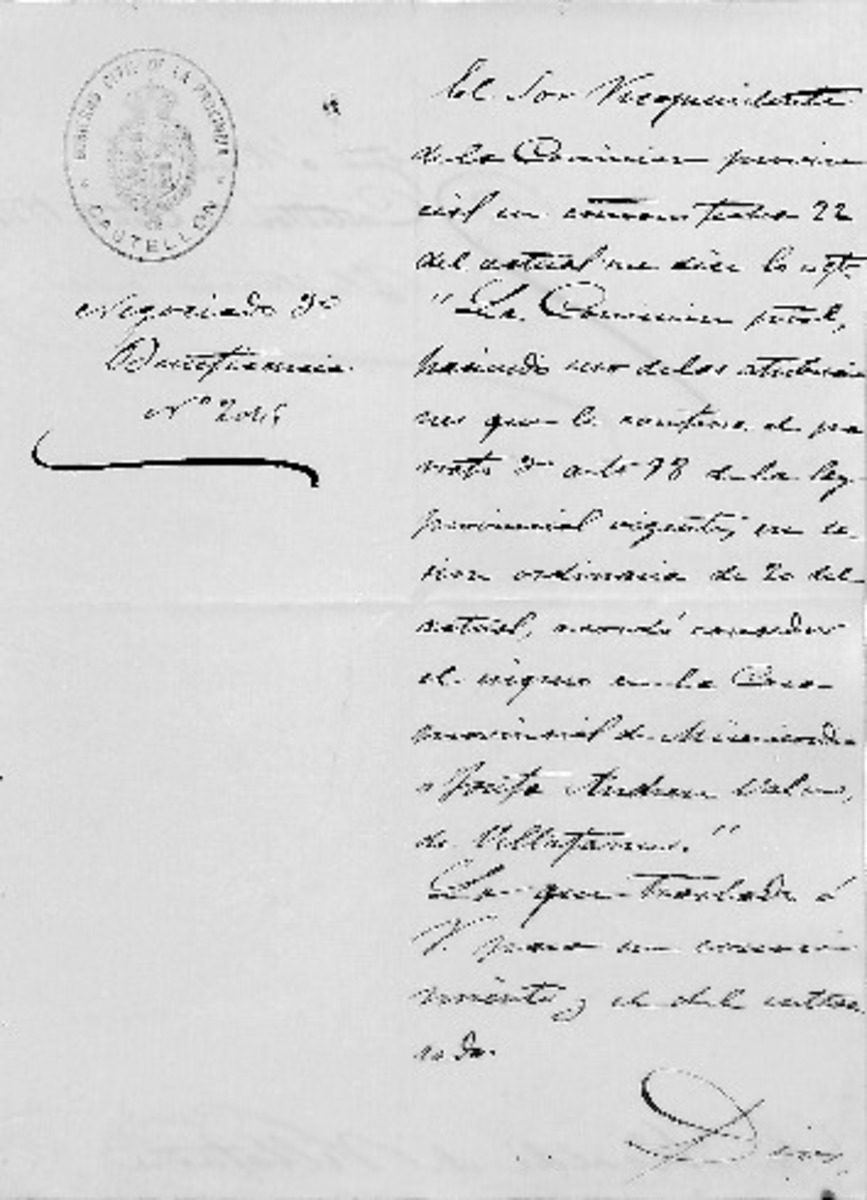 GOBIERNO CIVIL DE LA PROVINCIA
CASTELLON
Negociado de
Beneficencia
Nº 2045
El Sor Vicepresidente
de la Comision provin
cial en comon fecha 22
del actual me dice lo sigte.
"La Comision provl,
haciendo uso de las atribucio
nes que le confiere el pa
rrafo 3º arto 98 de la ley
provincial vigente, en se
sion ordinaria de 20 del
actual, acordó conceder
el ingreso en la Casa
provincial de Misericordia
a Josefa Andreu
de Villafamés."
Lo que traslado á
V. para su conoci
miento y el del intere
sado.
Dios